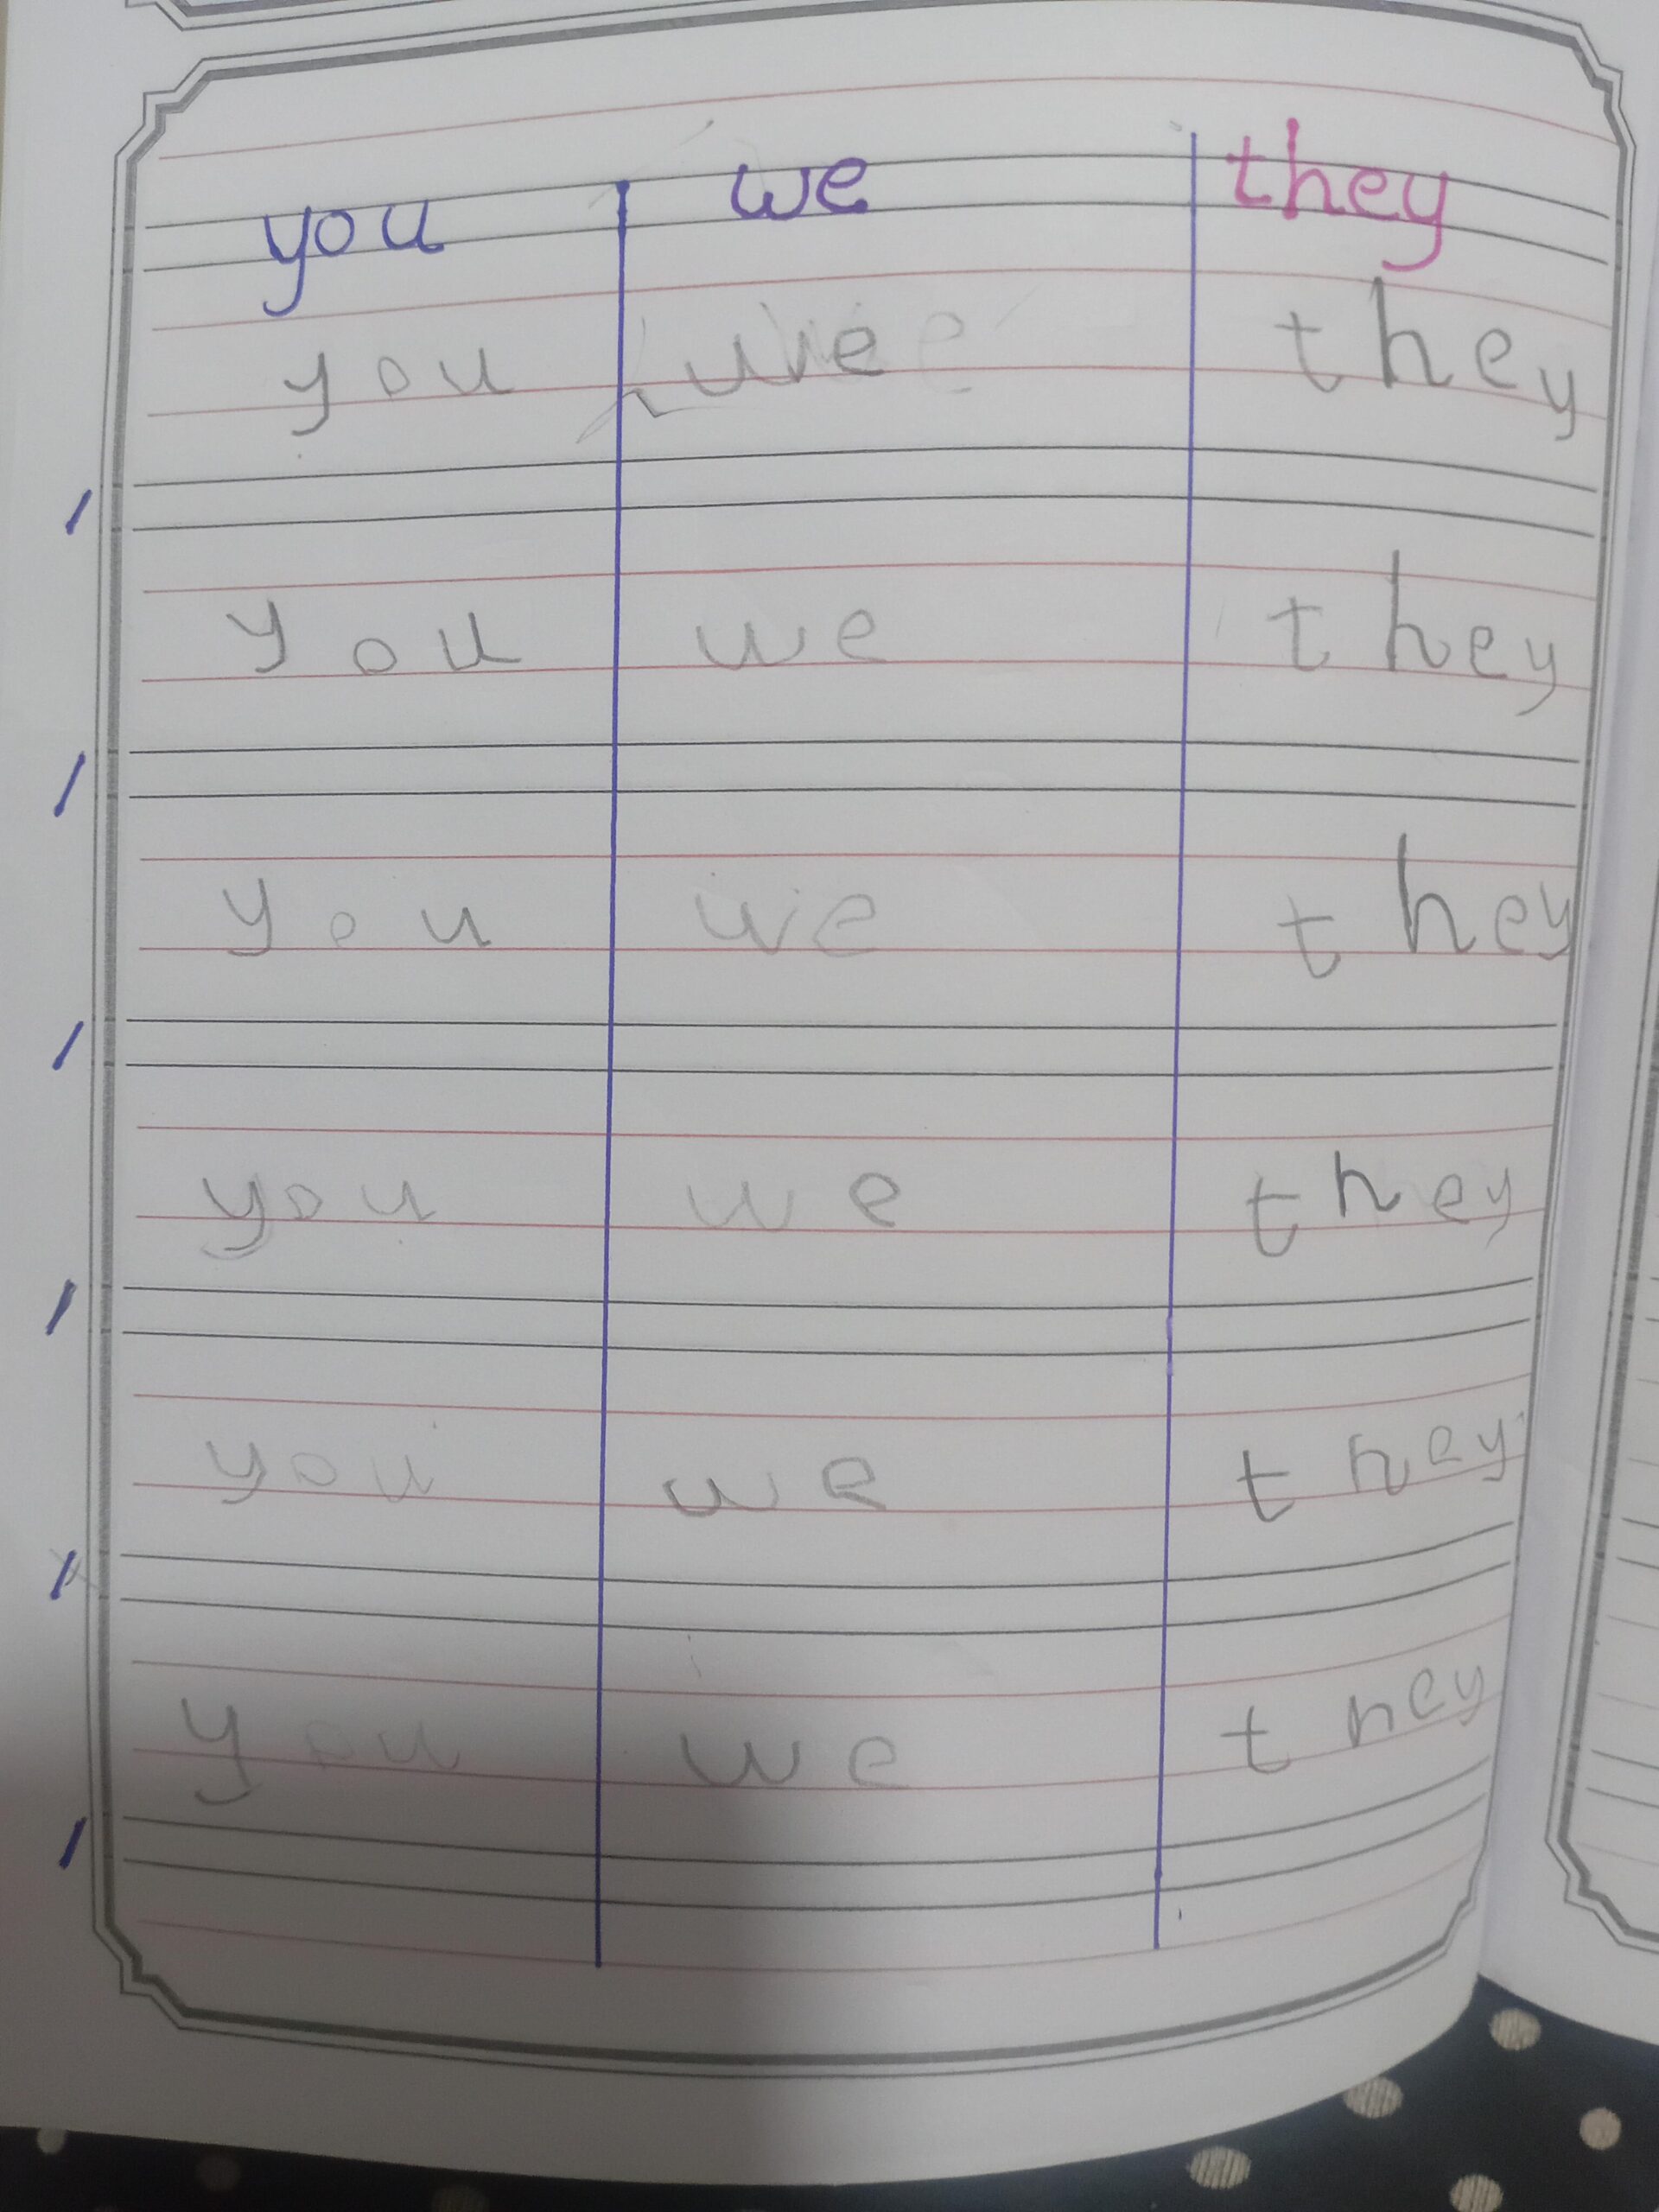 you we they
you we they
you we they
you we they
you we they
you we they
you we they